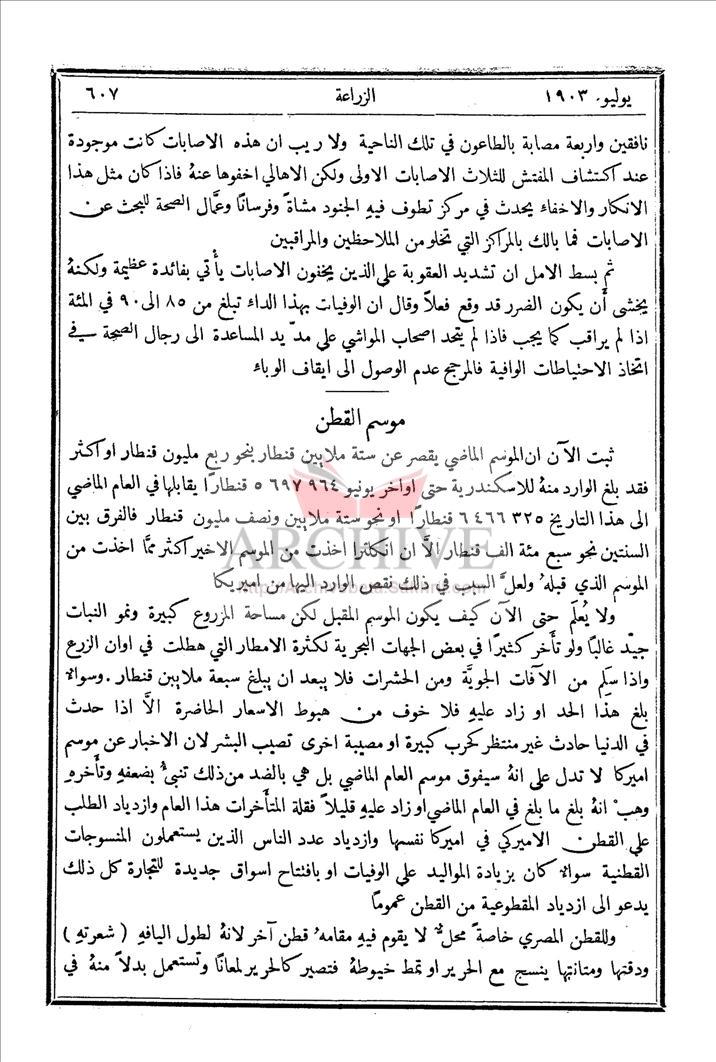 يوليو. ١٩٠٣ الزراعة ٦٠٧
نافقين واربعة مصابة بالطاعون في تلك الناحية ولا ريب ان هذه الاصابات كانت موجودة
عند اكتشاف المفتش للثلاث الاصابات الاولى ولكن الاهالي اخفوها عنهُ فاذا كان مثل هذا
الانكار والاخفاء يحدث في مركز تطوف فيهِ الجنود مشاةً وفرسانًا وعمَّال الصحة للبحث عن
الاصابات فما بالك بالمراكز التي تخلو من الملاحظين والمراقبين
ثم بسط الامل ان تشديد العقوبة على الذين يخفون الاصابات يأْتي بفائدة عظيمة ولكنهُ
يخشى أن يكون الضرر قد وقع فعلاً وقال ان الوفيات بهذا الداء تبلغ من ٨٥ الى ٩٠ في المئة
اذا لم يراقب كما يجب فاذا لم يتحد اصحاب المواشي على مدّ يد المساعدة الى رجال الصحة في
اتخاذ الاحتياطات الوافية فالمرجح عدم الوصول الى ايقاف الوباء
موسم القطن
ثبت الآن ان الموسم الماضي يقصر عن ستة ملايين قنطار بنحو ربع مليون قنطار او اكثر
فقد بلغ الوارد منهُ للاسكندرية حتى اواخر يونيو ٩٦٤ ٦٩٧ ٥ قنطارًا يقابلها في العام الماضي
الى هذا التاريخ ٣٢٥ ٤٦٦ ٦ قنطارًا او نحو ستة ملايين ونصف مليون قنطار فالفرق بين
السنتين نحو سبع مئة الف قنطار الاَّ ان انكلترا اخذت من الموسم الاخير اكثر ممَّا اخذت من
الموسم الذي قبلهُ ولعلَّ السبب في ذلك نقص الوارد اليها من اميركا
ولا يُعلَم حتى الآن كيف يكون الموسم المقبل لكن مساحة المزروع كبيرة ونمو النبات
جيّد غالبًا ولو تأَخر كثيرًا في بعض الجهات البحرية لكثرة الامطار التي هطلت في اوان الزرع
واذا سَلِم من الآفات الجويَّة ومن الحشرات فلا يبعد ان يبلغ سبعة ملايين قنطار. وسوالا
بلغ هذا الحد او زاد عليهِ فلا خوف من هبوط الاسعار الحاضرة الاَّ اذا حدث
في الدنيا حادث غير منتظر كحرب كبيرة او مصيبة اخرى تصيب البشر لان الاخبار عن موسم
اميركا لا تدل على انهُ سيفوق موسم العام الماضي بل هي بالضد من ذلك تنبىُّ بضعفهِ وتأَخرهِ
وهب انهُ بلغ ما بلغ في العام الماضي او زاد عليهِ قليلاً فقلة المتأَخرات هذا العام وازدياد الطلب
على القطن الاميركي في اميركا نفسها وازدياد عدد الناس الذين يستعملون المنسوجات
القطنية سوالا كان بزيادة المواليد على الوفيات او بافتتاح اسواق جديدة للتجارة كل ذلك
يدعو الى ازدياد المقطوعية من القطن عمومًا
وللقطن المصري خاصةً محلٌّ لا يقوم فيهِ مقامهُ قطن آخر لانهُ لطول اليافهِ (شعرتهِ)
ودقتها ومتانتها ينسج مع الحرير او تمط خيوطهُ فتصير كالحرير لمعانًا وتستعمل بدلاً منهُ في
ARCHIVE